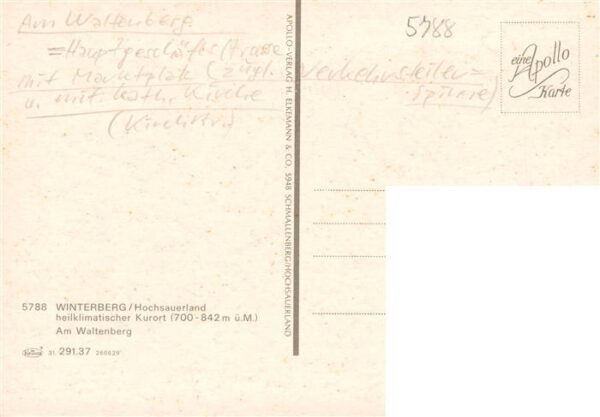 Am Waltenberg
= Hauptgeschäftsstrasse
mit Marktplatz (zugl. Verkehrsteiler=
u. mit kath. Kirche
(Kirchstr.)
5788
eine Apollo
Karte
APOLLO-VERLAG H. ELKEMANN & CO. 5948 SCHMALLENBERG/HOCHSAUERLAND
5788 WINTERBERG/Hochsauerland
heilklimatischer Kurort (700 - 842 m ü.M.)
Am Waltenberg
31 291.37 266629